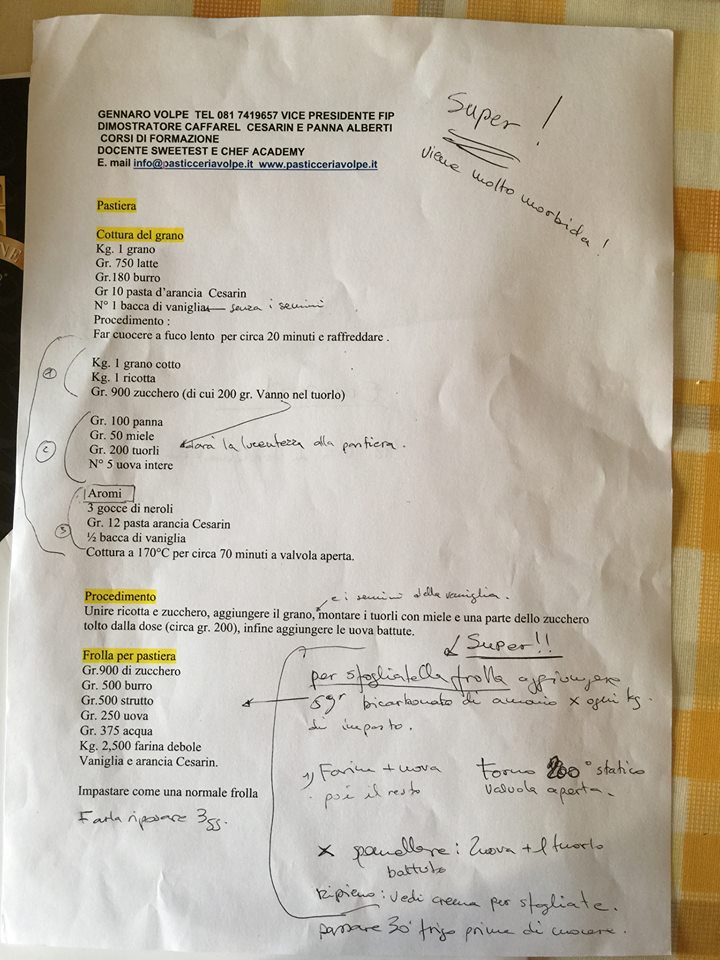 GENNARO VOLPE TEL 081 7419657 VICE PRESIDENTE FIP
DIMOSTRATORE CAFFAREL CESARIN E PANNA ALBERTI
CORSI DI FORMAZIONE
DOCENTE SWEETEST E CHEF ACADEMY
E. mail info@pasticceriavolpe.it www.pasticceriavolpe.it
Super!
viene molto morbida!
Pastiera
Cottura del grano
Kg. 1 grano
Gr. 750 latte
Gr.180 burro
Gr 10 pasta d'arancia Cesarin
N° 1 bacca di vaniglia senza i semini
Procedimento :
Far cuocere a fuco lento per circa 20 minuti e raffreddare .
Kg. 1 grano cotto
Kg. 1 ricotta
Gr. 900 zucchero (di cui 200 gr. Vanno nel tuorlo)
Gr. 100 panna
Gr. 50 miele
Gr. 200 tuorli darà la lucentezza alla pastiera.
N° 5 uova intere
Aromi
3 gocce di neroli
Gr. 12 pasta arancia Cesarin
½ bacca di vaniglia
Cottura a 170°C per circa 70 minuti a valvola aperta.
Procedimento
e i semini della vaniglia.
Unire ricotta e zucchero, aggiungere il grano, montare i tuorli con miele e una parte dello zucchero
tolto dalla dose (circa gr. 200), infine aggiungere le uova battute.
Frolla per pastiera
Gr.900 di zucchero
Gr. 500 burro
Gr.500 strutto
Gr. 250 uova
Gr. 375 acqua
Kg. 2,500 farina debole
Vaniglia e arancia Cesarin.
Impastare come una normale frolla
Farla riposare 3gg.
Super!!
per sfogliatella frolla aggiungere
5gr bicarbonato di amonio x ogni kg.
di impasto.
1) Farina + uova
poi il resto
forno 200° statico
valvola aperta.
x pennellare: 2uova + 1 tuorlo
battuto
Ripieno: vedi crema per sfogliate.
passare 30' frigo prima di cuocere.